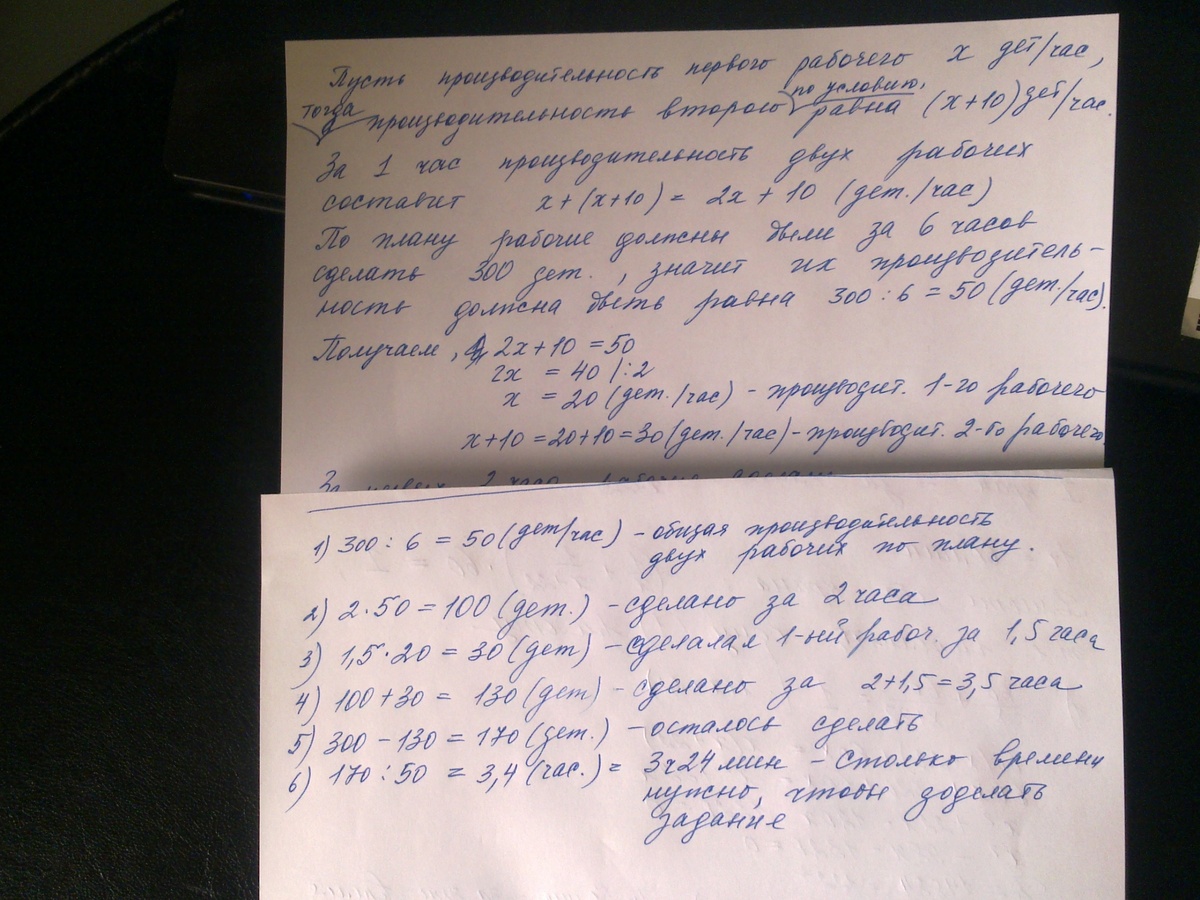 Пусть производительность первого рабочего x дет/час,
тогда по условию,
производительность второго равна (x+10) дет/час.
За 1 час производительность двух рабочих
составит x+(x+10) = 2x + 10 (дет./час)
По плану рабочие должны были за 6 часов
сделать 300 дет., значит их производитель-
ность должна быть равна 300 : 6 = 50 (дет./час).
Получаем, 2x+10 = 50
2x = 40 |:2
x = 20 (дет./час) - производит. 1-го рабочего
x+10 = 20+10 = 30 (дет./час) - производит. 2-го рабочего
За первых 2 часа рабочие
1) 300 : 6 = 50 (дет/час) - общая производительность
двух рабочих по плану.
2) 2·50 = 100 (дет.) - сделано за 2 часа
3) 1,5·20 = 30 (дет) - сделал 1-ый рабоч. за 1,5 часа
4) 100+30 = 130 (дет) - сделано за 2+1,5 = 3,5 часа
5) 300 - 130 = 170 (дет.) - осталось сделать
6) 170 : 50 = 3,4 (час.) = 3ч24мин - столько времени
нужно, чтобы доделать
задание